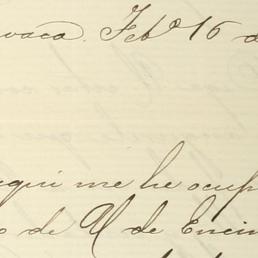 vaca. Feb.o 16 d
aqui me he ocup
o de U de Encin